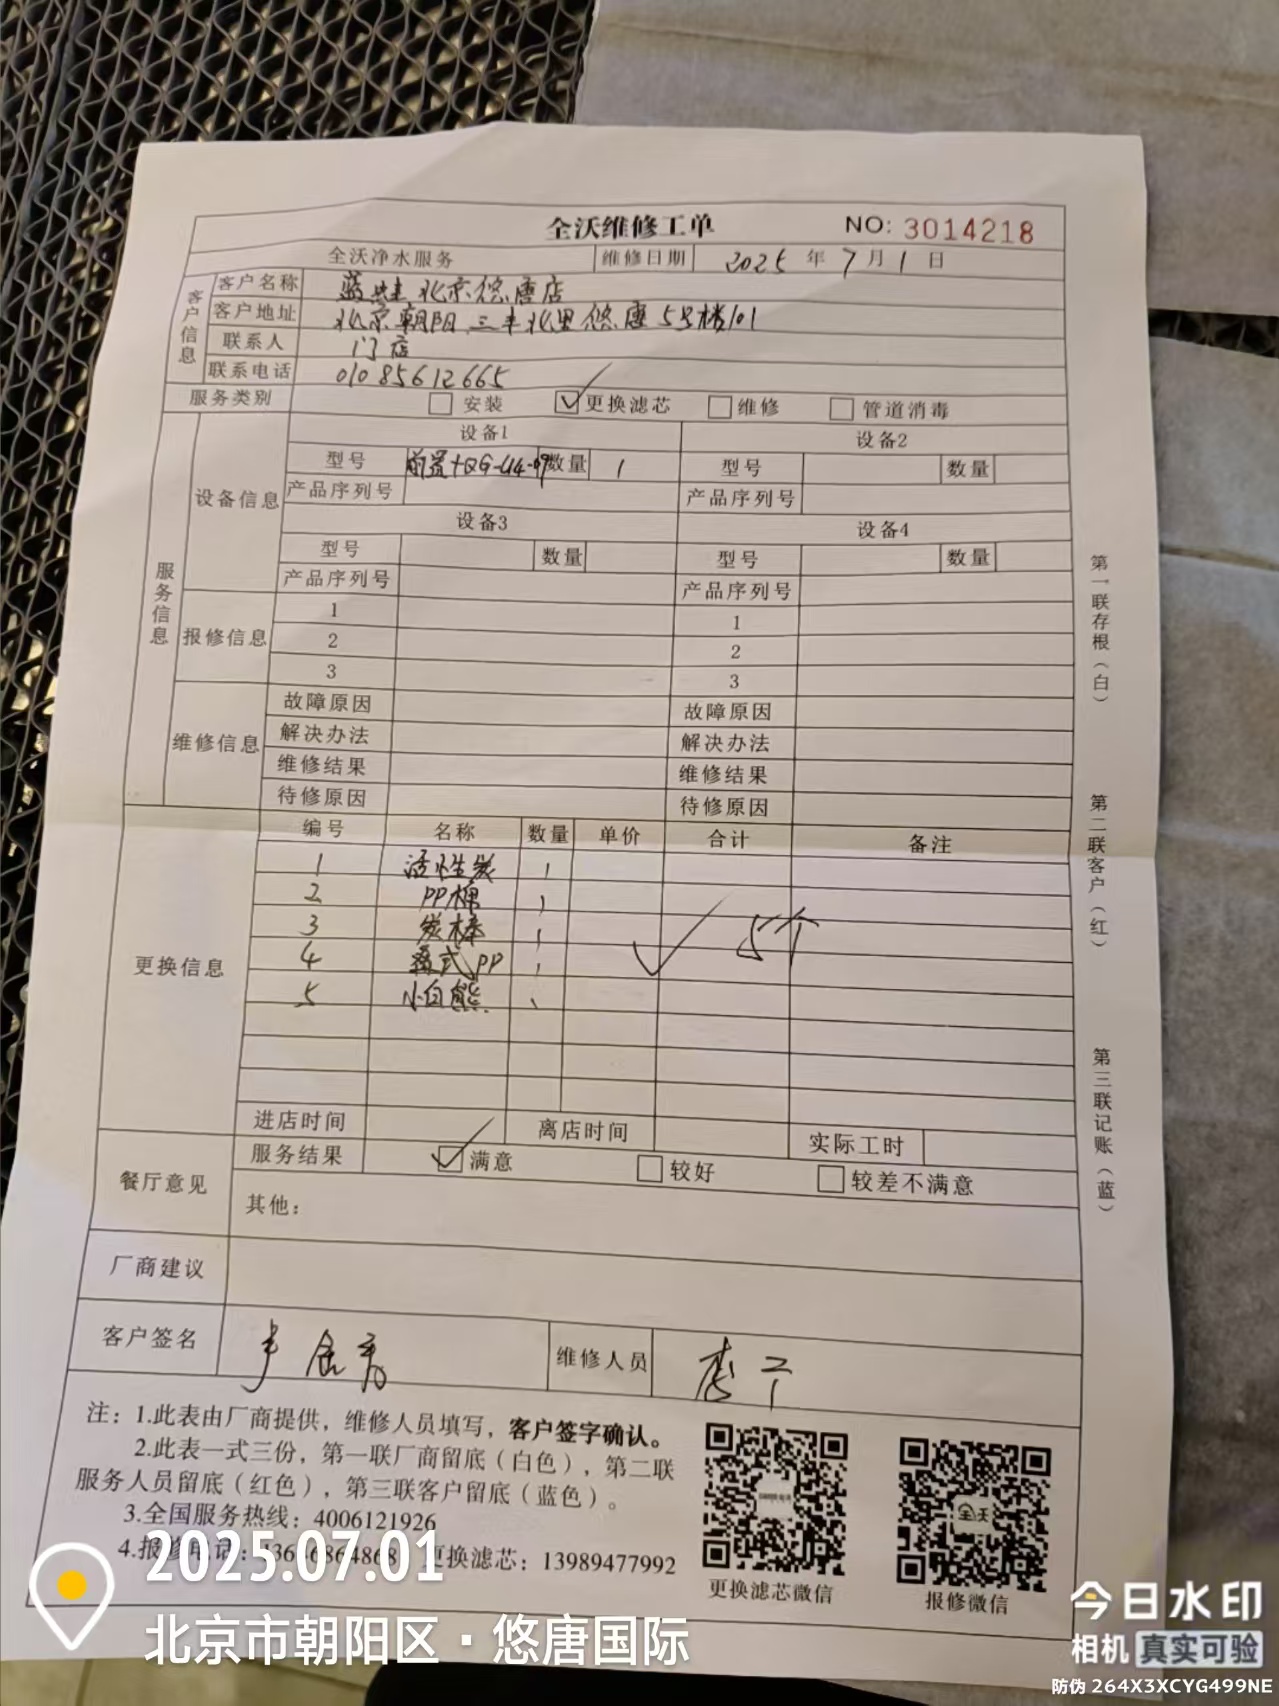 全沃维修工单 NO: 3014218
全沃净水服务 维修日期 2025 年 7 月 1 日
客户信息
客户名称 蓝蛙北京悠唐店
客户地址 北京朝阳三丰北里悠唐5号楼101
联系人 门店
联系电话 010 85612665
服务类别 安装 更换滤芯 维修 管道消毒
服务信息
设备信息
设备1 设备2
型号 前置+QG-U4-09 数量 1 型号 数量
产品序列号 产品序列号
设备3 设备4
型号 数量 型号 数量
产品序列号 产品序列号
报修信息
1 1
2 2
3 3
维修信息
故障原因 故障原因
解决办法 解决办法
维修结果 维修结果
待修原因 待修原因
更换信息
编号 名称 数量 单价 合计 备注
1 活性炭 1
2 PP棉 1
3 炭棒 1 5个
4 叠式PP 1
5 小白熊 1
进店时间 离店时间 实际工时
餐厅意见
服务结果 满意 较好 较差不满意
其他：
厂商建议
客户签名 维修人员 李
注：1.此表由厂商提供，维修人员填写，客户签字确认。
2.此表一式三份，第一联厂商留底（白色），第二联
服务人员留底（红色），第三联客户留底（蓝色）。
3.全国服务热线：4006121926
4.报修电话： 更换滤芯：13989477992
更换滤芯微信 报修微信
全沃
第一联存根（白）
第二联客户（红）
第三联记账（蓝）
2025.07.01
北京市朝阳区·悠唐国际
今日水印
相机 真实可验
防伪 264X3XCYG499NE